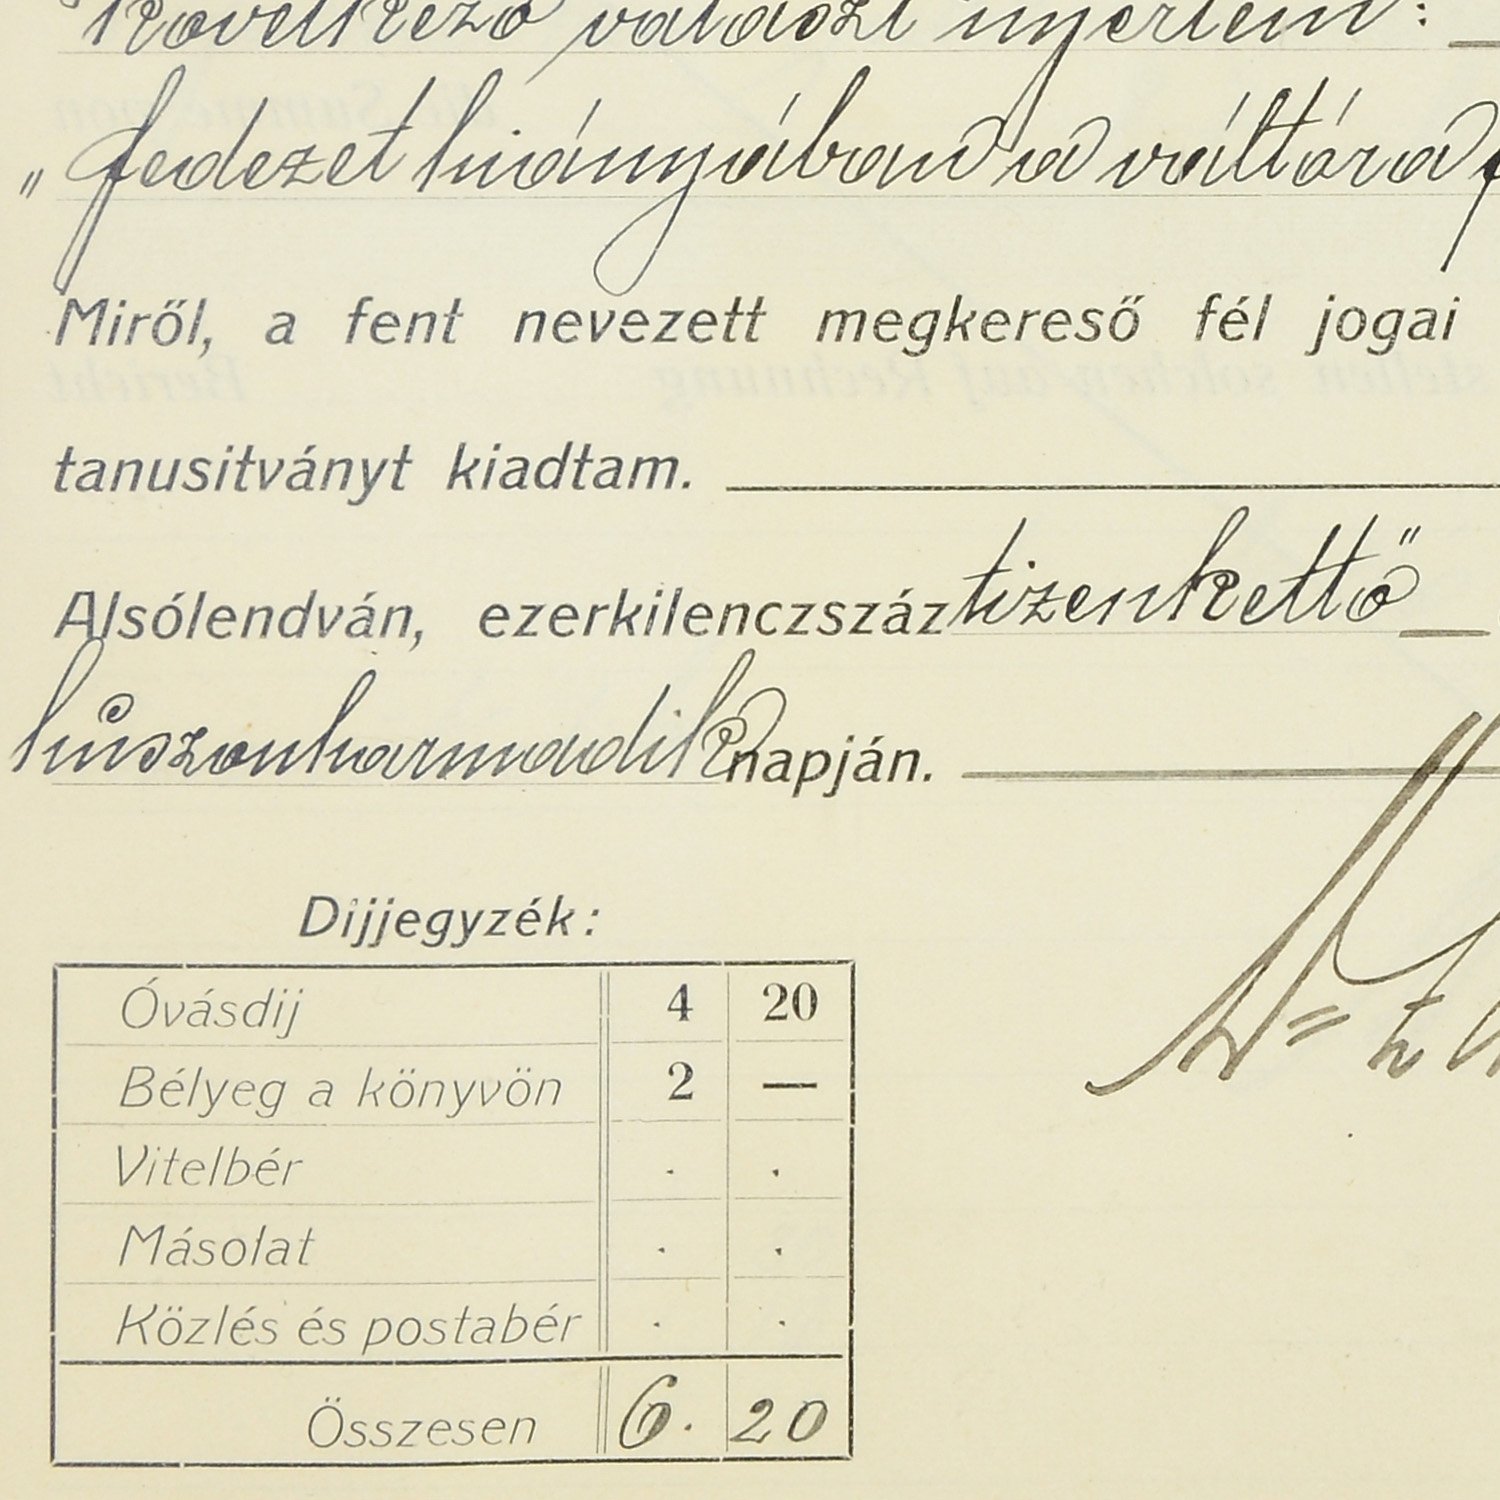 következő választ nyertem:
„fedezet hiányában a váltóra
Miről, a fent nevezett megkereső fél jogai
tanusitványt kiadtam.
Alsólendván, ezerkilenczszáz tizenkettő
huszonharmadik napján.
Dijjegyzék:
Óvásdij 4 20
Bélyeg a könyvön 2 —
Vitelbér . .
Másolat . .
Közlés és postabér . .
Összesen 6. 20